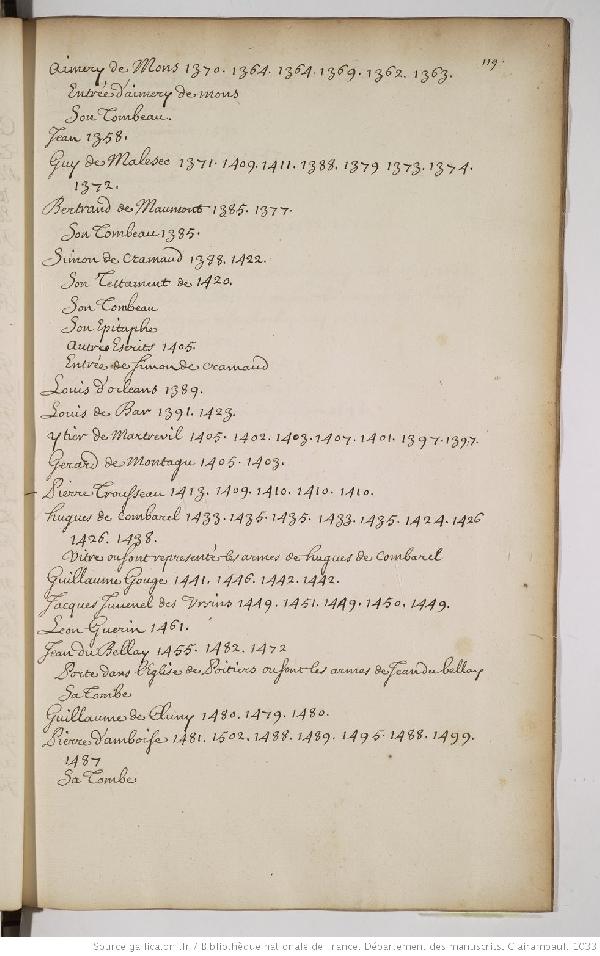 119.
Aimery de Mons 1370. 1364. 1364. 1369. 1362. 1363.
Entrée d'aimery de mons
Son Tombeau.
Jean 1358.
Guy de Malesec 1371. 1409. 1411. 1388. 1379 1373. 1374.
1372.
Bertrand de Maumont 1385. 1377.
Son Tombeau 1385.
Simon de Cramaud 1388. 1422.
Son Testament de 1420.
Son Tombeau
Son Epitaphe
autres Escrits 1405.
Entrée de Simon de Cramaud
Louis d'orleans 1389.
Louis de Bar 1391. 1423.
ytier de Martrevil 1405. 1402. 1403. 1407. 1401. 1397. 1397.
Gerard de Montagu 1405. 1403.
Pierre Trousseau 1413. 1409. 1410. 1410. 1410.
hugues de Combarel 1433. 1435. 1435. 1433. 1435. 1424. 1426
1426. 1438.
Vitre ou sont representé les armes de hugues de Combarel
Guillaume Gouge 1441. 1446. 1442. 1442.
Jacques Juvenel des Vrsins 1449. 1451. 1449. 1450. 1449.
Léon Guerin 1461.
Jean du Bellay 1455. 1482. 1472
Porte dans l'Eglise de Poitiers ou sont les armes de Jean du bellay
Sa Tombe
Guillaume de Cluny 1480. 1479. 1480.
Pierre d'amboise 1481. 1502. 1488. 1489. 1495. 1488. 1499.
1487
Sa Tombe
Source gallica.bnf.fr / Bibliothèque nationale de France. Département des manuscrits. Clairambault 1033